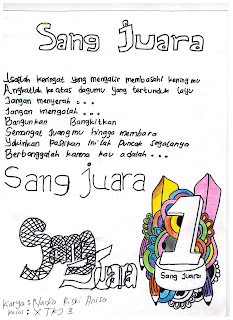 Sang Juara
Usaplah keringat yang mengalir membasahi keningmu
Angkatlah ke atas dagumu yang tertunduk layu
Jangan menyerah . . .
Jangan mengalah . . .
Bangunkan Bangkitkan
Semangat juangmu hingga membara
Yakinkan pastikan inilah puncak segalanya
Berbanggalah karena kau adalah . . .
Sang juara
Sang Juara
1
Sang Juara
Karya : Nadia Riski Anisa
Kelas : X TKJ 3